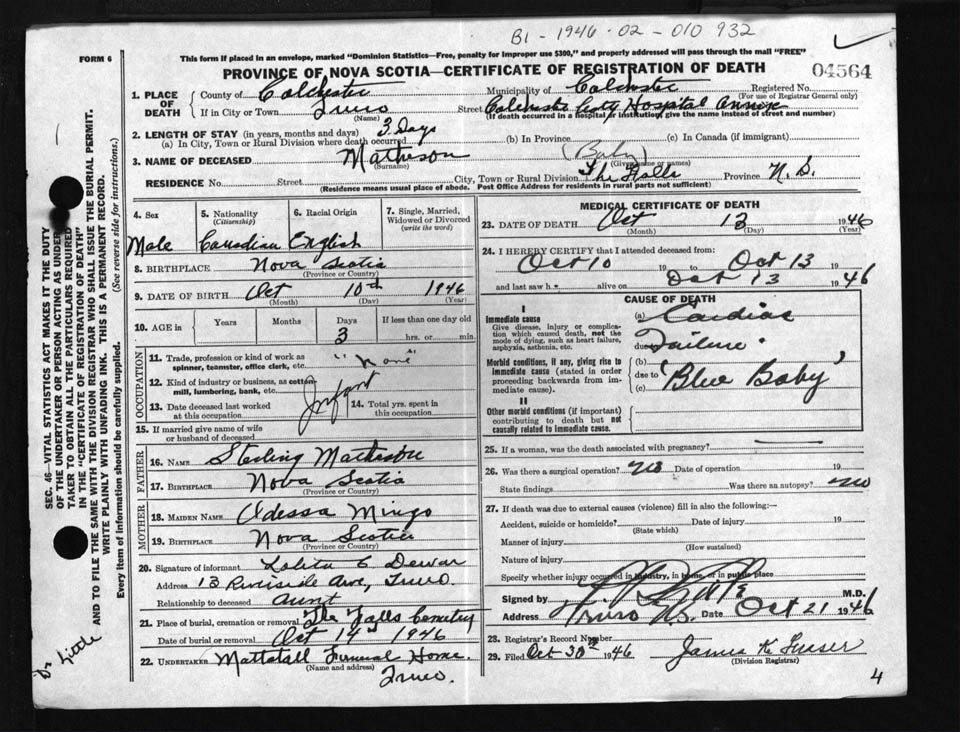 B1-1946-02-010 932
FORM 6
This form if placed in an envelope, marked "Dominion Statistics—Free, penalty for improper use $300," and properly addressed will pass through the mail "FREE"
PROVINCE OF NOVA SCOTIA—CERTIFICATE OF REGISTRATION OF DEATH
04564
1. PLACE OF DEATH
County of Colchester Municipality of Colchester Registered No.
(For use of Registrar General only)
If in City or Town Truro Street Colchester Cnty Hospital Annex
(Name) (If death occurred in a hospital or institution, give the name instead of street and number)
2. LENGTH OF STAY (in years, months and days)
(a) In City, Town or Rural Division where death occurred 3 Days (b) In Province (c) In Canada (if immigrant)
3. NAME OF DECEASED Matheson (Baby)
(Surname) (Given name or names)
RESIDENCE No. Street City, Town or Rural Division The Falls Province N.S.
(Residence means usual place of abode. Post Office Address for residents in rural parts not sufficient)
SEC. 46—VITAL STATISTICS ACT MAKES IT THE DUTY
OF THE UNDERTAKER OR PERSON ACTING AS UNDER-
TAKER TO OBTAIN ALL THE PARTICULARS REQUIRED
IN THE "CERTIFICATE OF REGISTRATION OF DEATH"
AND TO FILE THE SAME WITH THE DIVISION REGISTRAR WHO SHALL ISSUE THE BURIAL PERMIT.
WRITE PLAINLY WITH UNFADING INK. THIS IS A PERMANENT RECORD.
Every item of information should be carefully supplied. (See reverse side for instructions.)
4. Sex
Male
5. Nationality
(Citizenship)
Canadian
6. Racial Origin
English
7. Single, Married, Widowed or Divorced
(write the word)
8. BIRTHPLACE Nova Scotia
(Province or Country)
9. DATE OF BIRTH Oct 10th 1946
(Month) (Day) (Year)
10. AGE in Years Months Days If less than one day old
3 hrs. or min.
OCCUPATION
11. Trade, profession or kind of work as
spinner, teamster, office clerk, etc. "None"
12. Kind of industry or business, as cotton-
mill, lumbering, bank, etc. Infant
13. Date deceased last worked
at this occupation
14. Total yrs. spent in
this occupation
15. If married give name of wife
or husband of deceased
FATHER
16. NAME Sterling Matheson
17. BIRTHPLACE Nova Scotia
(Province or Country)
MOTHER
18. MAIDEN NAME Odessa Mingo
19. BIRTHPLACE Nova Scotia
(Province or Country)
20. Signature of informant Lolita E Dewar
Address 13 Riverside Ave, Truro.
Relationship to deceased aunt
21. Place of burial, cremation or removal The Falls Cemetery
Date of burial or removal Oct 14th 1946
22. UNDERTAKER Mattatall Funeral Home.
(Name and address)
Truro.
MEDICAL CERTIFICATE OF DEATH
23. DATE OF DEATH Oct 13 1946
(Month) (Day) (Year)
24. I HEREBY CERTIFY that I attended deceased from:
Oct 10 19 to Oct 13 19
and last saw h alive on Oct 13 1946
CAUSE OF DEATH
I
Immediate cause
Give disease, injury or complica-
tion which caused death, not the
mode of dying, such as heart failure,
asphyxia, asthenia, etc.
(a) Cardiac
due to Failure.
Morbid conditions, if any, giving rise to
immediate cause (stated in order
proceeding backwards from im-
mediate cause).
(b)
due to 'Blue Baby'
(c)
II
Other morbid conditions (if important)
contributing to death but not
causally related to immediate cause.
25. If a woman, was the death associated with pregnancy?
26. Was there a surgical operation? no Date of operation 19
State findings Was there an autopsy? no
27. If death was due to external causes (violence) fill in also the following:—
Accident, suicide or homicide? Date of injury 19
(State which)
Manner of injury
(How sustained)
Nature of injury
Specify whether injury occurred in industry, in home, or in public place
Signed by M.D.
Address Truro N.S. Date Oct 21 1946
28. Registrar's Record Number
29. Filed Oct 30th 1946 James K Fraser
(Division Registrar)
Dr Little
4